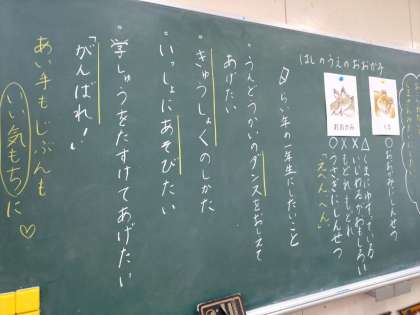 はしのうえのおおかみ
くま
おおかみ
〇おおかみにしんせつ
△くまにゆずっている
✕いじわるがおもしろい
✕もどれもどれ
〇うさぎにしんせつ
「えへん、へん」
らい年の一年生にしたいこと
・うんどうかいのダンスをおしえて
あげたい
・きゅうしょくのしかた
・いっしょにあそびたい
・学しゅうをたすけてあげたい
「がんばれ!」
あい手もじぶんも
いい気もちに♡